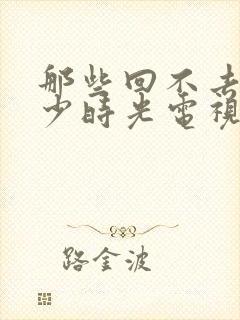 那些回不去
少時光電視
路金波